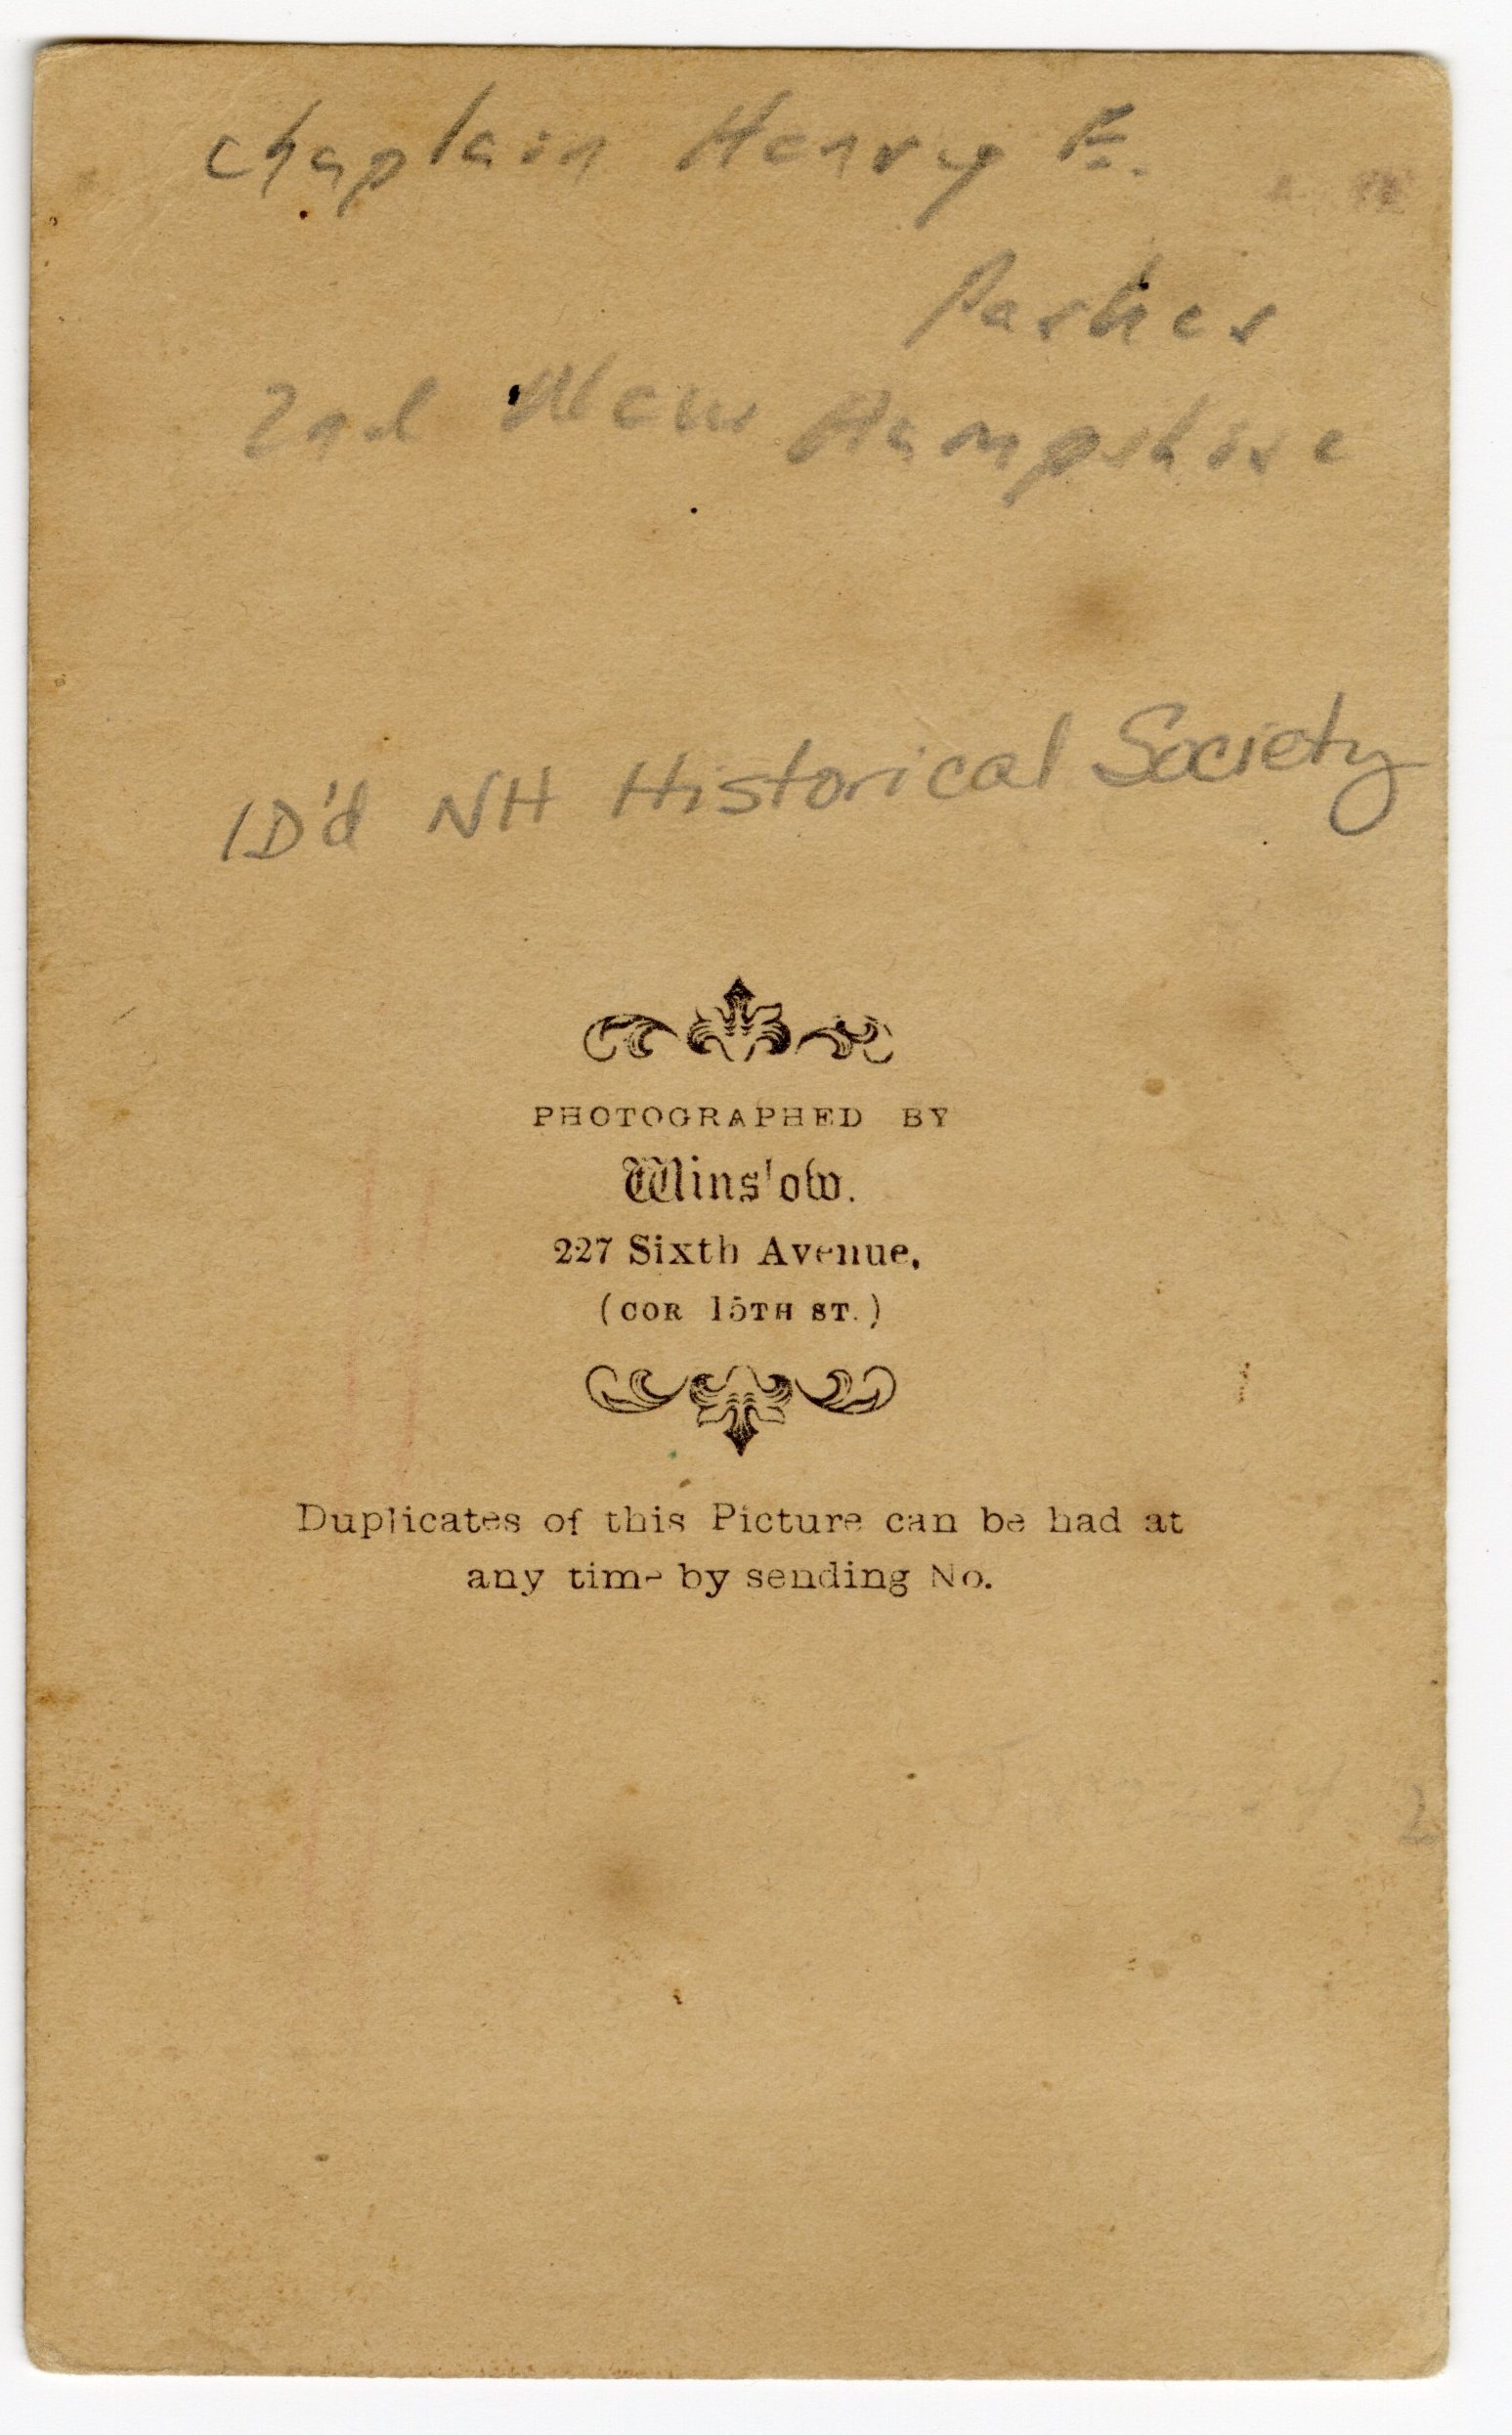 Chaplain Henry E.
Parker
2nd New Hampshire
ID'd NH Historical Society
PHOTOGRAPHED BY
Winslow.
227 Sixth Avenue,
(COR 15TH ST.)
Duplicates of this Picture can be had at
any time by sending No.